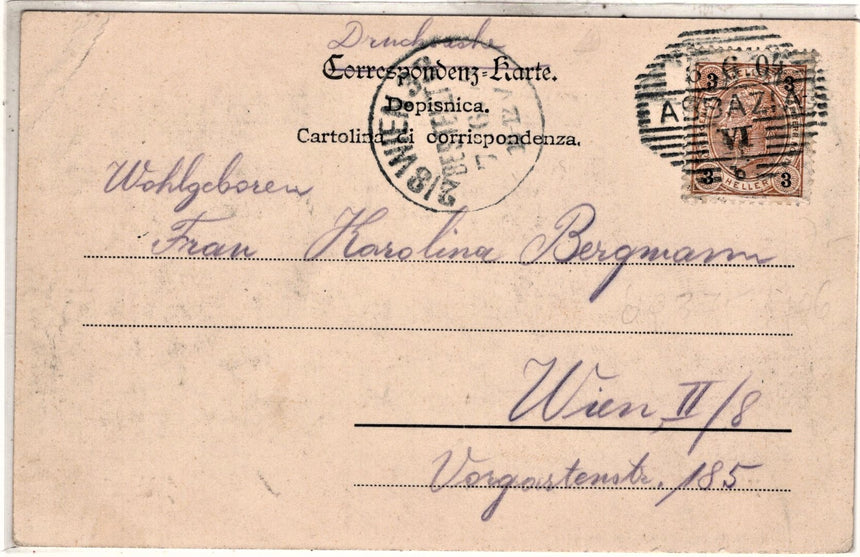 Drucksache
Correspondenz-Karte.
Dopisnica.
Cartolina di corrispondenza.
2/8 WIEN
BESTELLT
3 3
8 6 04
ABBAZIA
VI
3 HELLER 3
Wohlgeboren
Frau Karolina Bergmann
Wien II/8
Vorgartenstr. 185